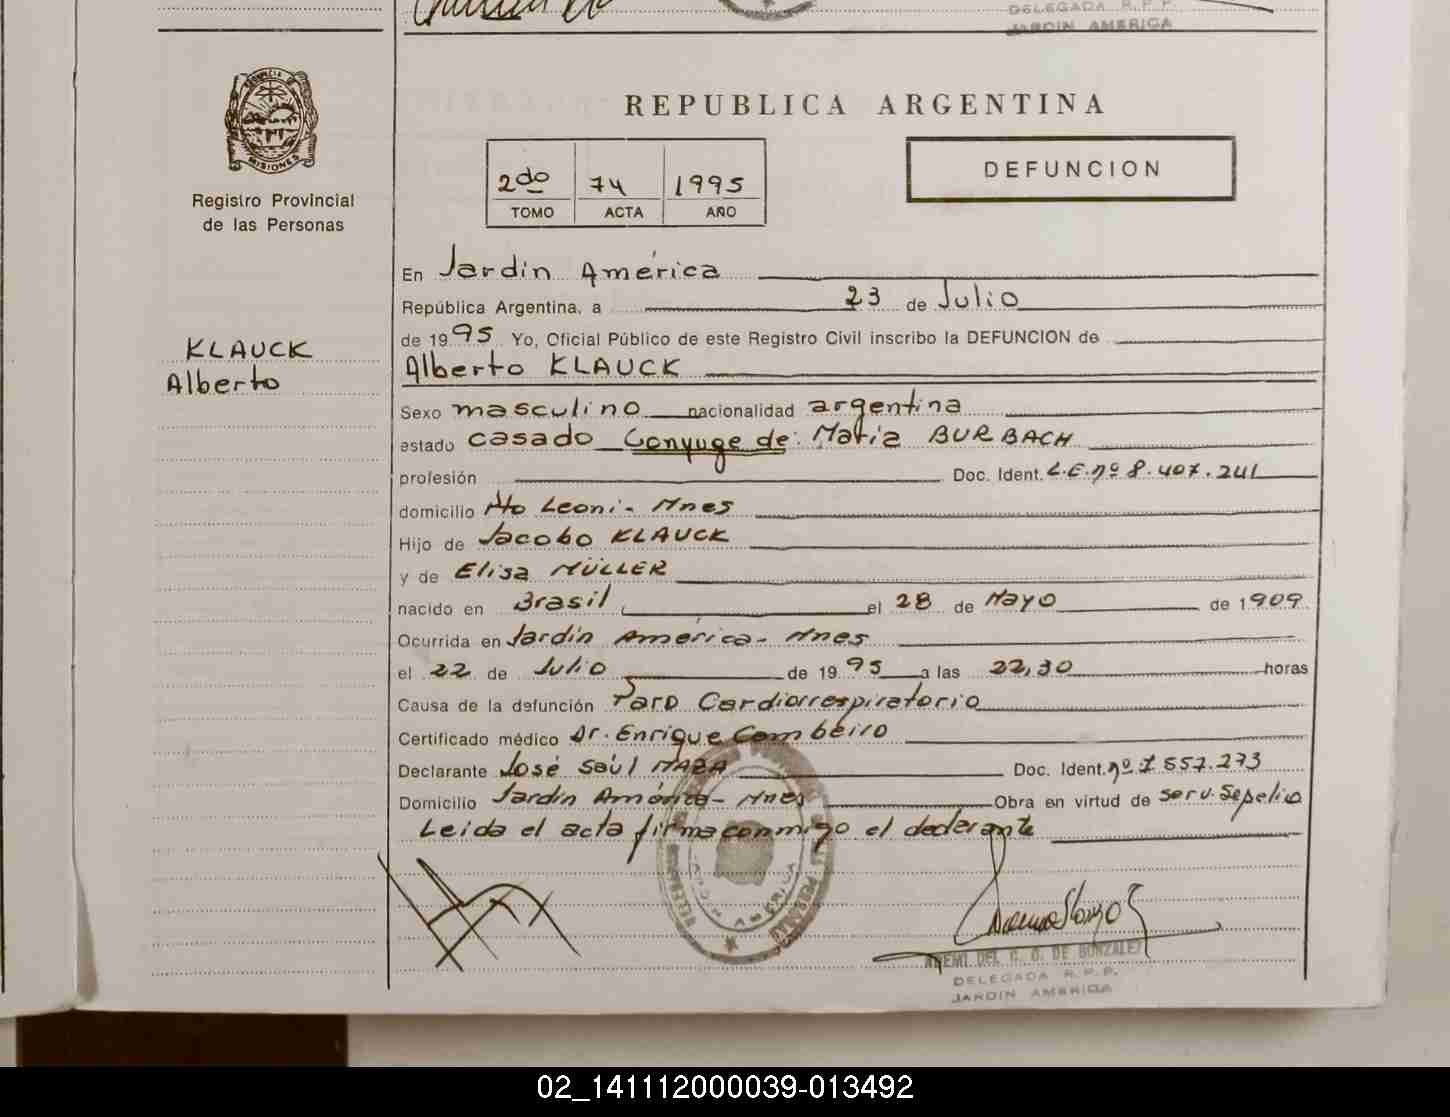 DELEGADA R. P. P.
JARDIN AMERICA
PROVINCIA DE
MISIONES
Registro Provincial
de las Personas
REPUBLICA ARGENTINA
2do 74 1995
TOMO ACTA AÑO
DEFUNCION
En Jardín América
República Argentina, a 23 de Julio
de 1995 Yo, Oficial Público de este Registro Civil inscribo la DEFUNCION de
KLAUCK
Alberto
Alberto KLAUCK
Sexo masculino nacionalidad argentina
estado casado Conyuge de: María BURBACH
profesión Doc. Ident. L.E. nº 8.407.241
domicilio Hto Leoni- Mnes
Hijo de Jacobo KLAUCK
y de Elisa MÜLLER
nacido en Brasil el 28 de Mayo de 1909
Ocurrida en Jardín América- Mnes
el 22 de Julio de 1995 a las 22,30 horas
Causa de la defunción Paro Cardiorrespiratorio
Certificado médico Dr. Enrique Combeiro
Declarante José Saúl MAZA Doc. Ident. nº 7 557.273
Domicilio Jardín América- Mnes Obra en virtud de serv. Sepelio
Leida el acta firma conmigo el declarante
AMERICA
DEL C. O. DE GONZALEZ
DELEGADA R. P. P.
JARDIN AMERICA
02_141112000039-013492